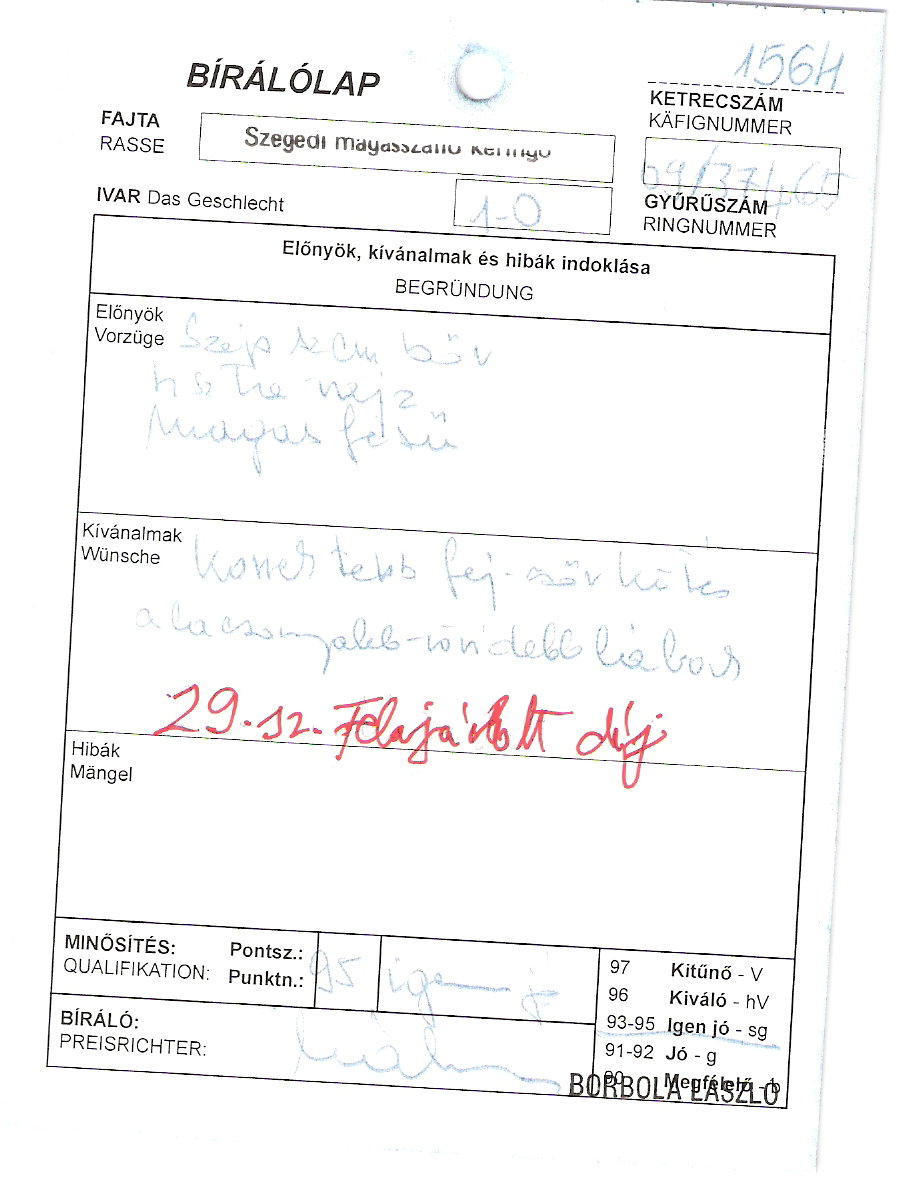 1564
BÍRÁLÓLAP
KETRECSZÁM
KÄFIGNUMMER
FAJTA
RASSE
Szegedi magasszálló keringő
09/37465
GYŰRŰSZÁM
RINGNUMMER
IVAR Das Geschlecht
1-0
Előnyök, kívánalmak és hibák indoklása
BEGRÜNDUNG
Előnyök
Vorzüge
Szép szem bőr
Magas fesű
Kívánalmak
Wünsche
fej-
alacsonyabb-rövidebb lábak
29. sz. Felajánlott díj
Hibák
Mängel
MINŐSÍTÉS:
QUALIFIKATION:
Pontsz.:
Punktn.:
95
igen j
97 Kitűnő - V
96 Kiváló - hV
93-95 Igen jó - sg
91-92 Jó - g
90 Megfelelő - b
BÍRÁLÓ:
PREISRICHTER:
BORBOLA LÁSZLÓ